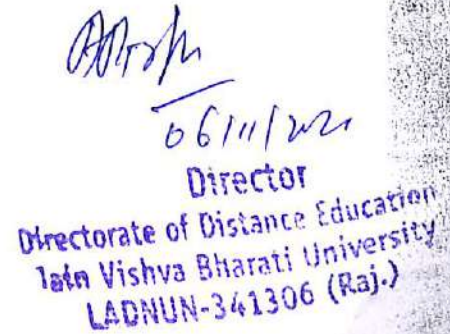 06/11/202
Director
Directorate of Distance Education
Jain Vishva Bharati University
LADNUN-341306 (Raj.)